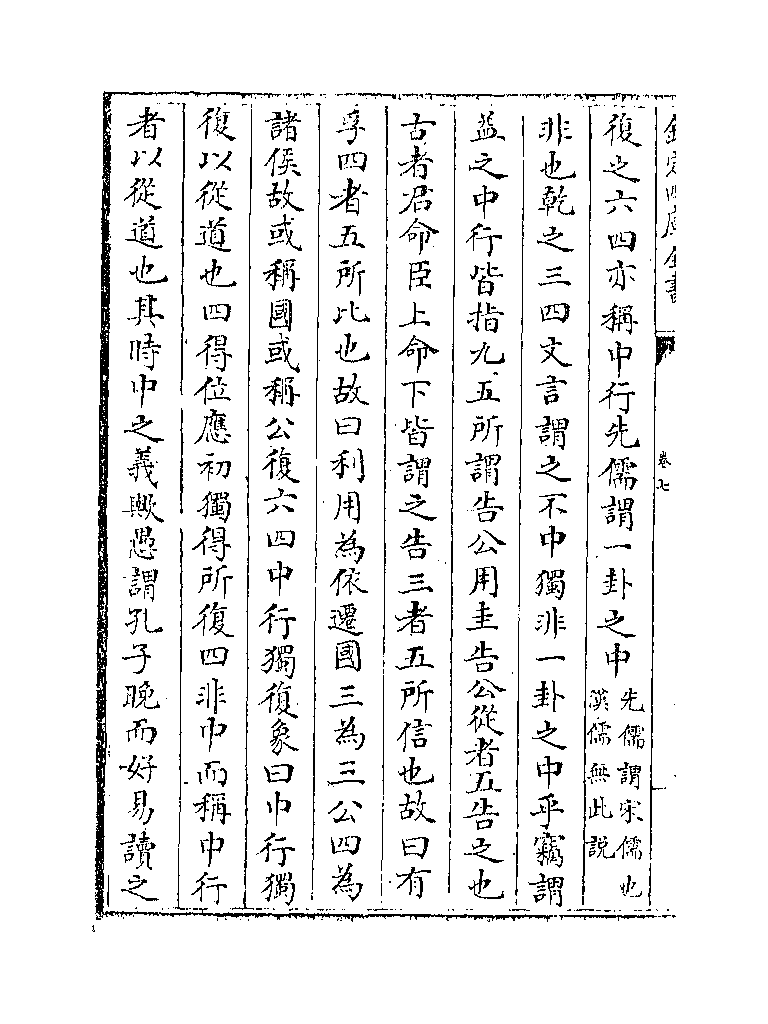 欽定四庫全書
卷七
復之六四亦稱中行先儒謂一卦之中先儒謂宋儒也漢儒無此説
非也乾之三四文言謂之不中獨非一卦之中乎竊謂
益之中行皆指九五所謂告公用圭告公從者五告之也
古者君命臣上命下皆謂之告三者五所信也故曰有
孚四者五所比也故曰利用為依遷國三為三公四為
諸侯故或稱國或稱公復六四中行獨復象曰中行獨
復以從道也四得位應初獨得所復四非中而稱中行
者以從道也其時中之義歟愚謂孔子晚而好易讀之